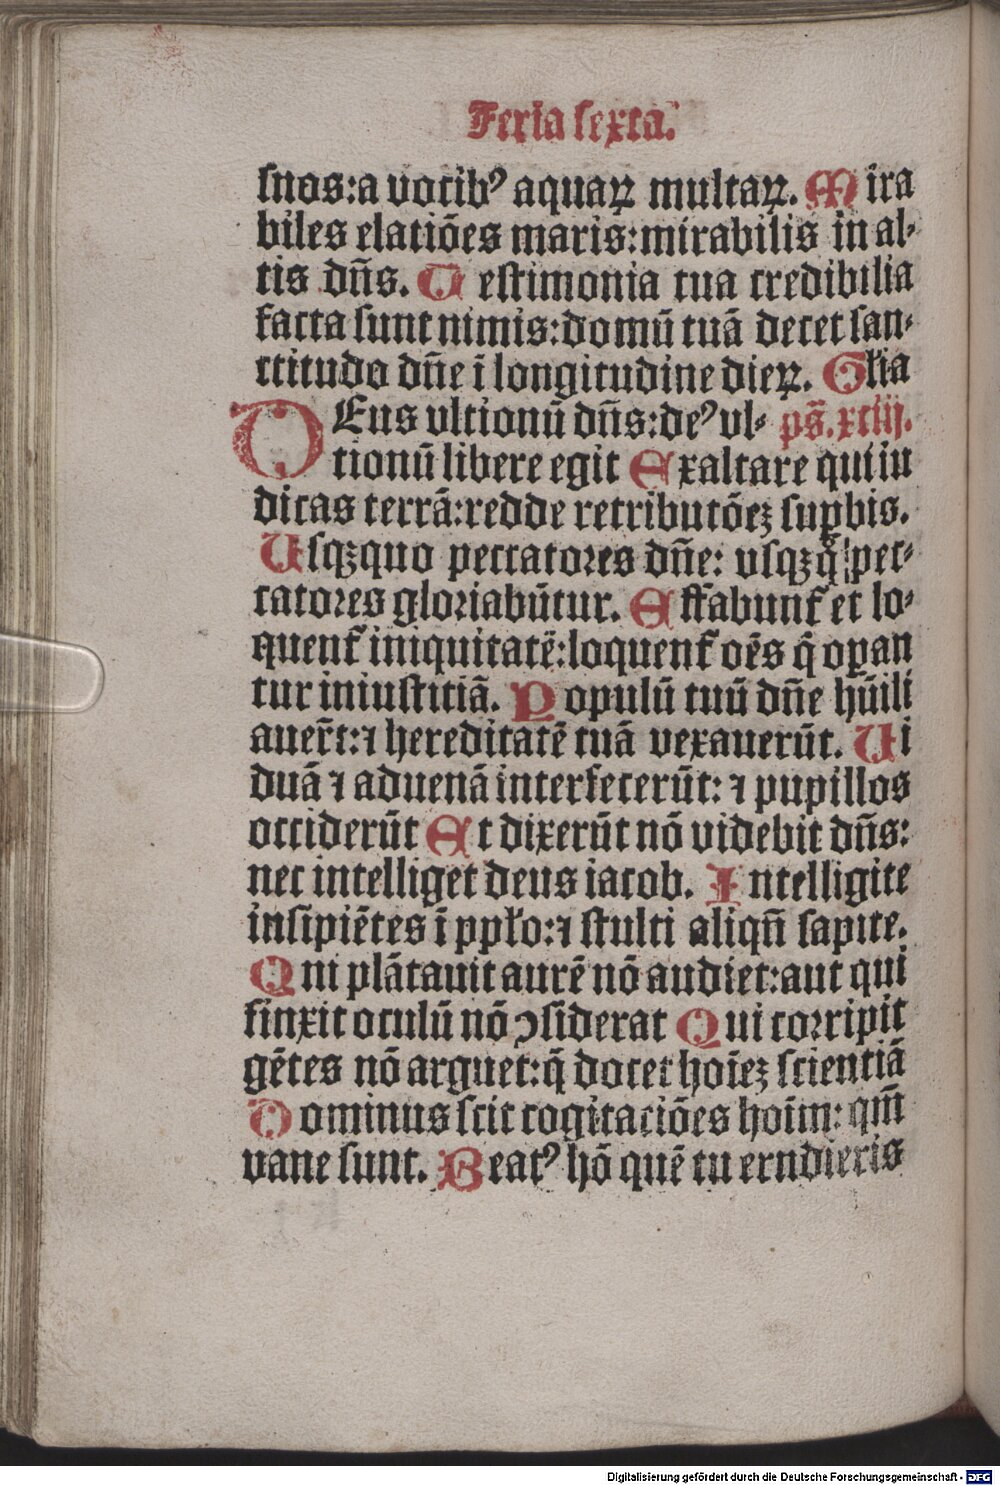 Feria sexta.
snos:a vocibꝰ aquaꝝ multaꝝ. Mira
biles elatiões maris:mirabilis in al⸗
tis dñs. Testimonia tua credibilia
facta sunt nimis:domū tuā decet san⸗
ctitudo dñe ī longitudine dieꝝ. Glĩa
DEus vltionū dñs:deꝰ vl⸗ pš. xciij.
tionū libere egit Exaltare qui iu
dicas terrā:redde retributōeꝫ suꝑbis.
Usqꝫquo peccatores dñe: vsqꝫq̊ pec⸗
catores gloriabūtur. Effabunt̃ et lo⸗
quent̃ iniquitatē:loquent̃ oēs q̄ oꝑan
tur iniustitiā. Populū tuū dñe hūili
auer̄t:⁊ hereditatē tuā vexauerūt. Ui
duā ⁊ aduenā interfecerūt: ⁊ pupillos
occiderūt Et dixerūt nō videbit dñs:
nec intelliget deus iacob. Intelligite
insipiētes ī ppľo:⁊ stulti aliqñ sapite.
Qui plātauit aurē nō audiet:aut qui
finxit oculū nō ↄsiderat Qui corripit
gētes nō arguet:q̄ docet hoīeꝫ scientiā
Dominus scit cogitaciōes hoīm: qm̄
vane sunt. Beatꝰ hō quē tu erudieris
Digitalisierung gefördert durch die Deutsche Forschungsgemeinschaft - DFG